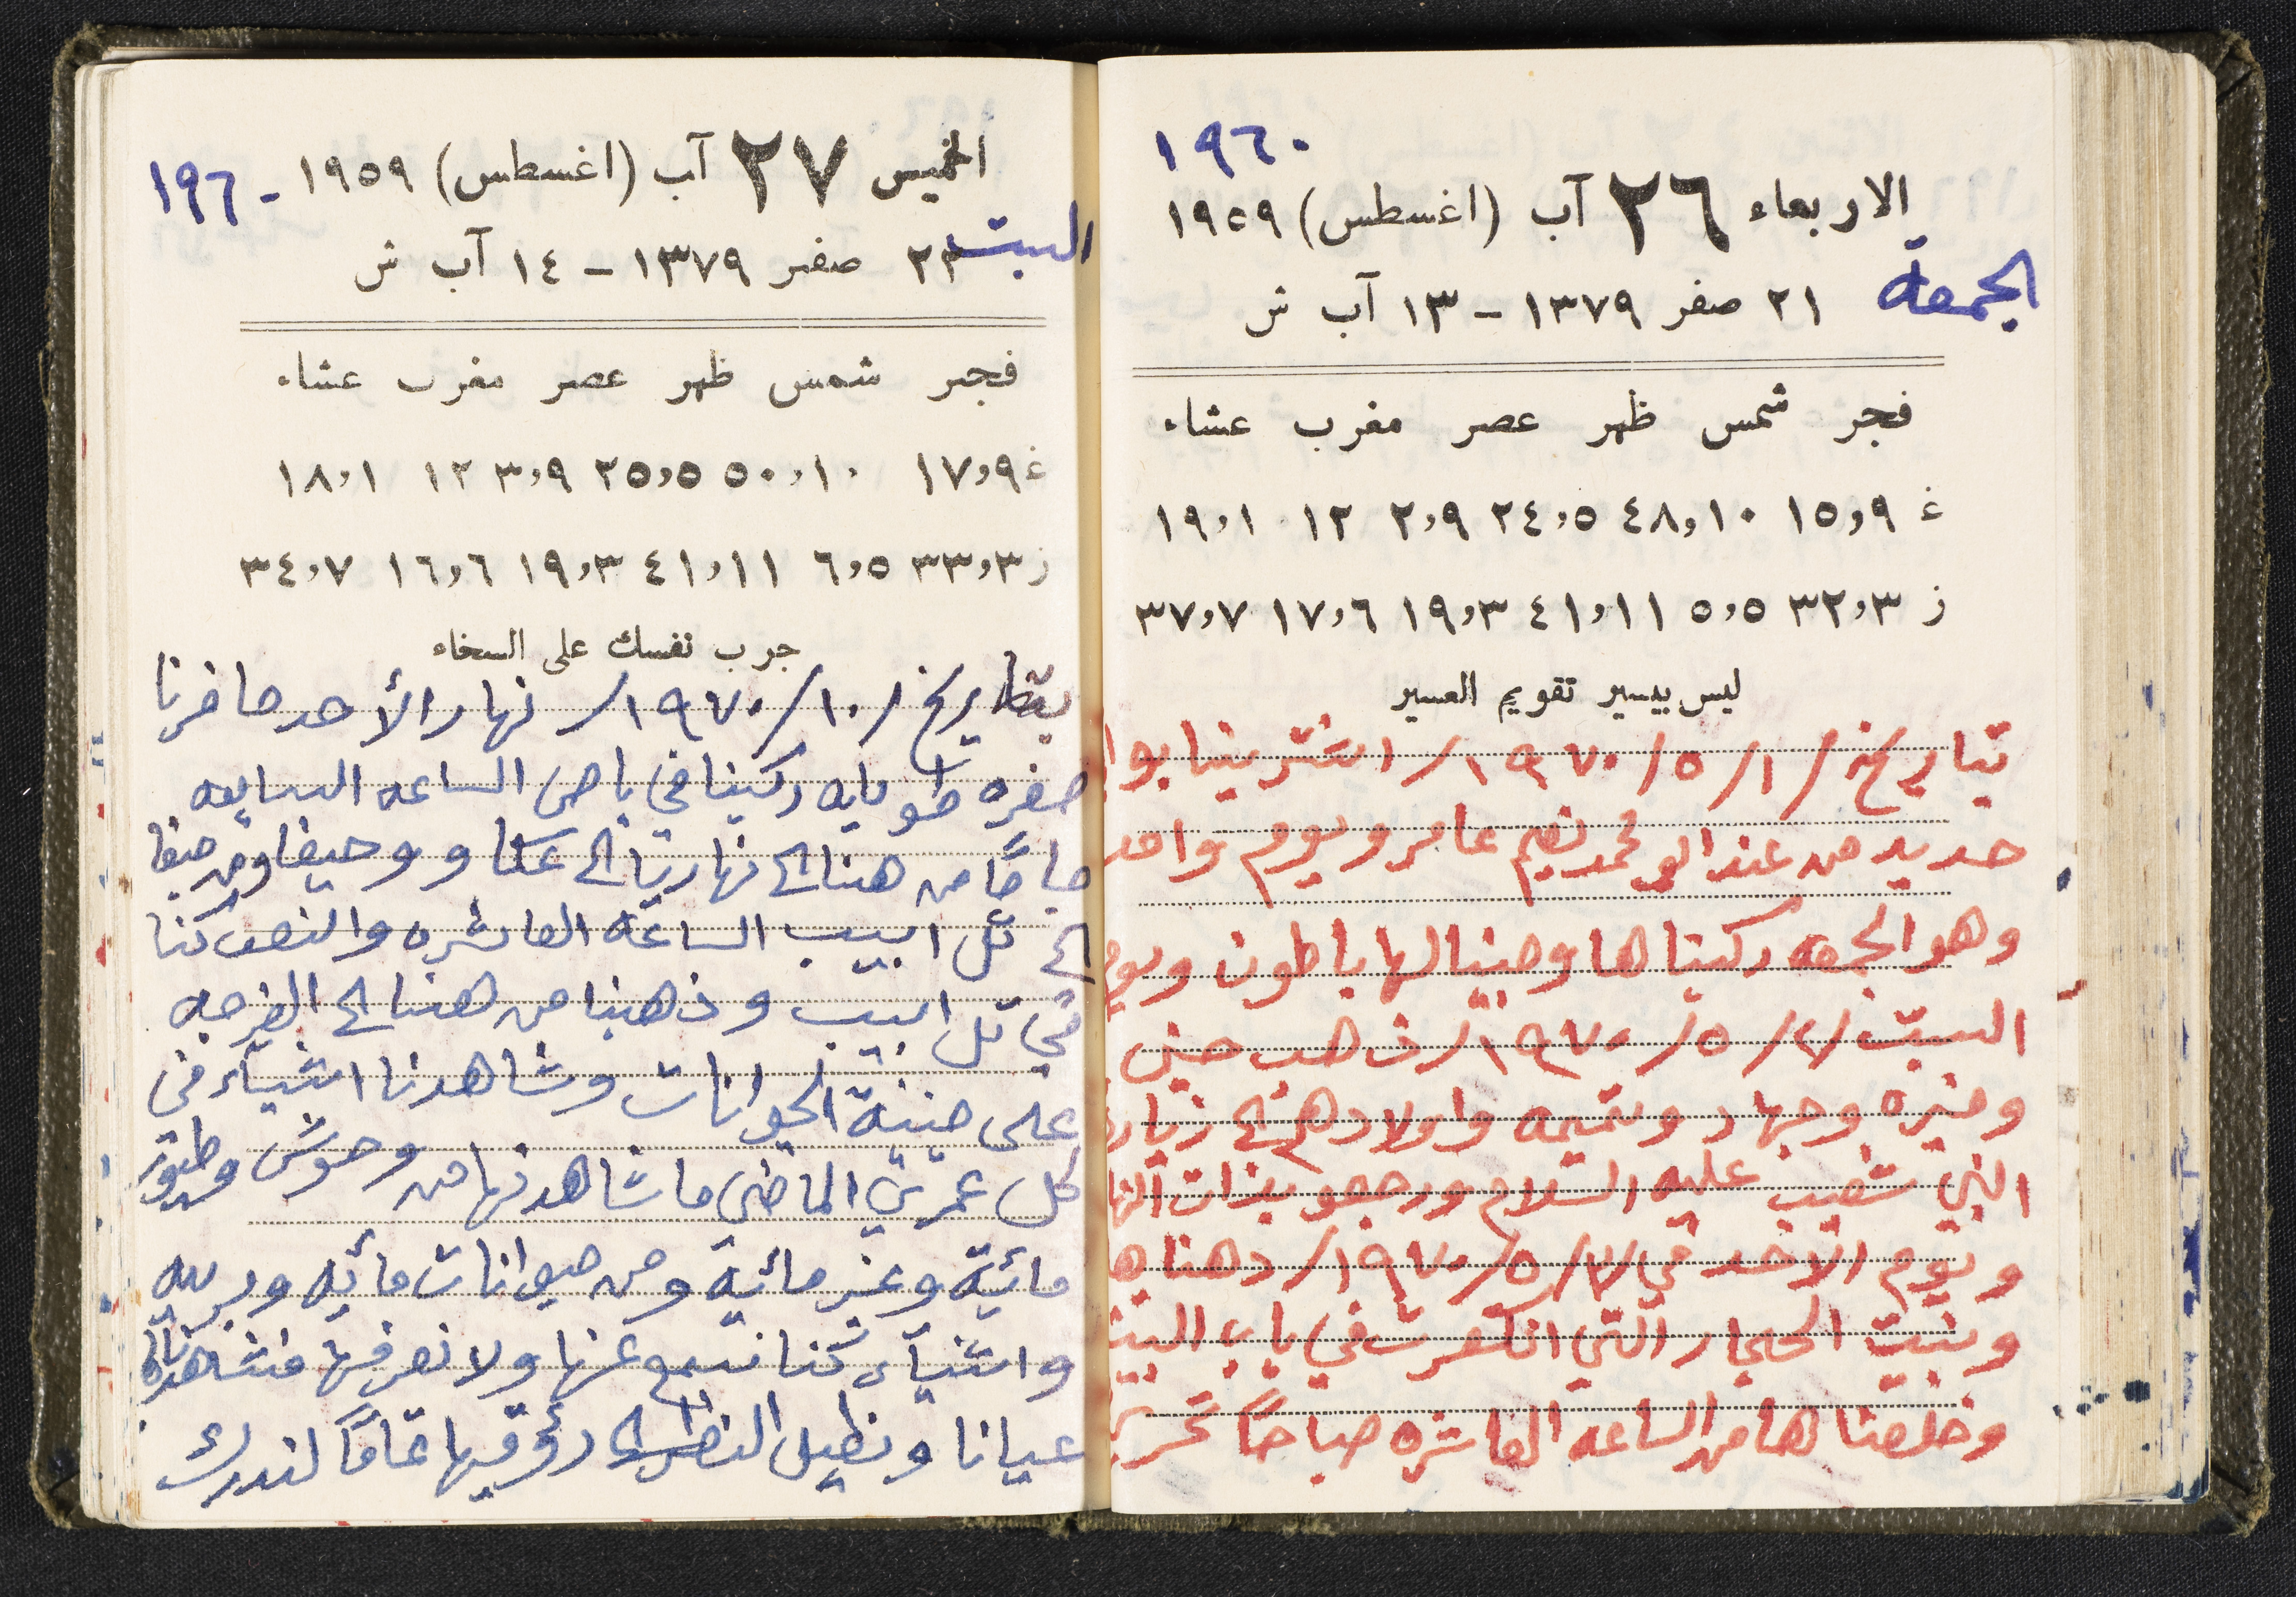 ١٩٦٠
الاربعاء ٢٦ آب (اغسطس) ١٩٥٩
الجمعة
٢١ صفر ١٣٧٩ – ١٣ آب ش
فجر شمس ظهر عصر مغرب عشاء
غ ١٥,٩ ٤٨,١٠ ٢٤,٥ ٢,٩ ١٢ ١٩,١
ز ٣٢,٣ ٥,٥ ٤١,١١ ١٩,٣ ١٧,٦ ٣٧,٧
ليس بيسير تقويم العسير
بتاريخ /١/ ٥/ ١٩٧٠/ اشترينا بوا
حديد من عند ابو محمد نعيم عامر ويوم واحد
وهو الجمعه ركبناها وجبنا لها باطون ويوم
السبت /٢/ ٥/ ١٩٧٠/ ذهب حسن
ومنيره وجهاد ونعيمه واولادهم الى زيارة
النبي شعيب عليه السلام ورجعو بذات النها
ويوم الاحد في /٣/ ٥/ ١٩٧٠/ دهناها
وبنيت الحجار التي انكسرت في باب البيت
وخلصنا لها من الساعه العاشره صباحاً
الخميس ٢٧ آب (اغسطس) ١٩٥٩ ١٩٦٠
السبت
٢٢ صفر ١٣٧٩ – ١٤ آب ش
فجر شمس ظهر عصر مغرب عشاء
غ ١٧,٩ ٥٠,١٠ ٢٥,٥ ٣,٩ ١٢ ١٨,١
ز ٣٣,٣ ٦,٥ ٤١,١١ ١٩,٣ ١٦,٦ ٣٤,٧
جرب نفسك على السخاء
بتاريخ /١٠/ ١٩٧٠/ نهار الأحد سافرنا
سفره طويله ركبنا في باص الساعه السابعه
صباحاً من هنا الى نهاريا الى عكا و وحيفا ومن حيفا
الى تل ابيب الساعه العاشره والنصف كنا
في تل ابيب وذهبنا من هنا الى الفرجه
على جنينة الحيوانات وشاهدنا اشياء في
كل عمري الماضي ما شاهدنها من وحوش وطيور
مائية وغير مائية ومن حيوانات مائيه وبريه
واشياء كنا نسمع عنها ولا نعرفها فشاهدناها
عيانا ونطيل النظر الى رؤيتها تماماً لندرك